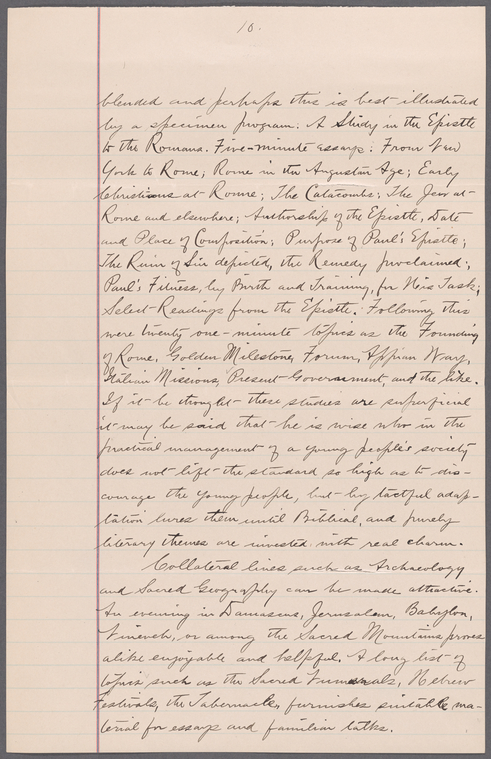 10.
blended and perhaps this is best illustrated
by a specimen program: A Study in the Epistle
to the Romans. Five-minute essays: From New
York to Rome; Rome in the Augustan Age; Early
Christians at Rome; The Catacombs; The Jew at
Rome and elsewhere; Authorship of the Epistle, Date
and Place of Composition; Purpose of Paul's Epistle;
The Ruin of Sin depicted, the Remedy proclaimed;
Paul's Fitness, by Birth and Training, for His Task;
Select Readings from the Epistle. Following this
were twenty one-minute topics as the Founding
of Rome, Golden Milestone, Forum, Appian Way,
Italian Missions, Present Government, and the like.
If it be thought these studies are superficial
it may be said that he is wise who in the
practical management of a young people's society
does not lift the standard so high as to dis-
courage the young people, but by tactful adap-
tation lures them until Biblical, and purely
literary themes are invested with real charm.
Collateral lines such as Archaeology
and Sacred Geography can be made attractive.
An evening in Damascus, Jerusalem, Babylon,
Nineveh, or among the Sacred Mountains proves
alike enjoyable and helpful. A long list of
topics such as the Sacred Numerals, Hebrew
Festivals, the Tabernacle, furnishes suitable ma-
terial for essays and familiar talks.